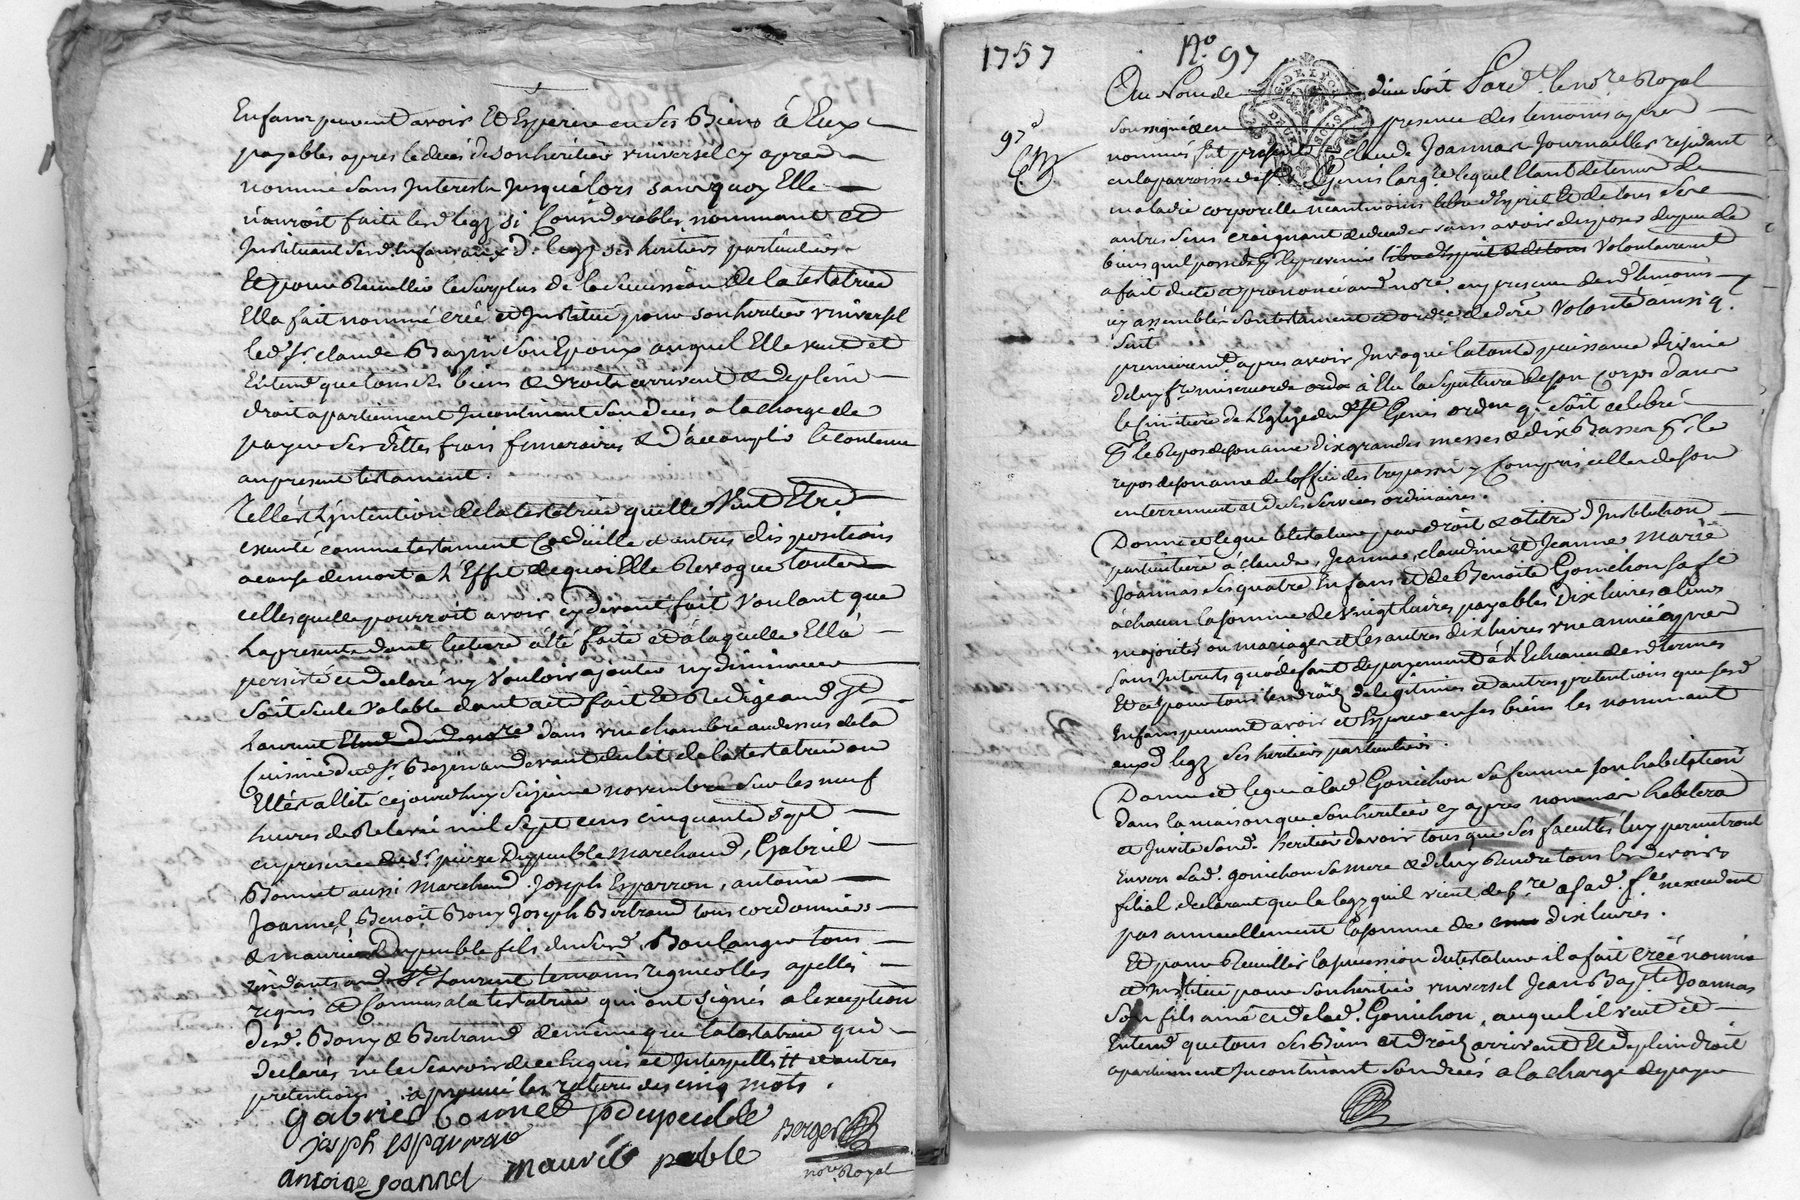 Enfans peuvent avoir Et Esperer en ses Biens à Eux
payables apres le deces de son heritier vniversel cy apres
nommé sans Interests Jusqu'alors sans quoy Elle
n'auroit faite les d. legz si Considerables, nommant et
Instituant ses d. Enfans aux d. legz ses heritiers particuliers
Et pour Recueillir le surplus de la Succession de la testatrice
Ella fait nommé créé et Institué pour son heritier vniversel
led. Sr. claude Bazin son Epoux auquel Elle veut et
Entend que tous ses biens & droits arrivent & de plein
droit apartiennent Incontinent son deces a la charge de
payer ses dettes frais funeraires & d'accomplir le contenu
au present testament.
Telle est L'intention de la testatrice quelle Veut Etre
executé comme testament Codicille et autres dispositions
a cause de mort a L'Effet de quoi Elle Revoque toutes
celles quelle pourroit avoir cy devant fait Voulant que
la presente dont lecture a été faite et à laquelle Ella
persisté et declaré n'y Vouloir ajouter ny diminuer
soit seule valable dont acte fait Et Redigé aud. St.
Laurent Etude dud. nore dans vne chambre au dessus de la
Cuisine dud. Sr. Bazin au devant du lit de la testatrice ou
Elle est alitée ce jourd'huy seizieme novembre sur les neuf
heures de Relevée mil Sept cens cinquante sept
en presence de Sr. pierre Dupeuble Marchand, Gabriel
Bonnet aussi Marchand, Joseph Esparron, antoine
Joannel, Benoit Bony Joseph Bertrand tous cordonniers
& maurice Dupeuble fils dud. Sr. Boulanger tous
residants aud. St. Laurent temoins regnicolles apellés
requis et Connus a la testatrice qui ont signés a l'exception
desd. Bony & Bertrand de même que la testatrice qui
declarés ne le Scavoir de ce Enquis et Interpellés # et autres
pretentions aprouvé les ratures des cinq mots.
gabriel bonnet p dupeuble
joseph esparron
antoine joannel maurice peuble Berger
nore. Royal
1757 No. 97
Au Nom de dieu soit Pard. le nore Royal
soussigné & en presence des temoins apres
97e
nommés fut present claude Joannas Journaillier residant
en la parroisse de St. Genis largre. lequel Etant detenu de
maladie corporelle neantmoins libre d'Esprit Et de tous Sere
autres sens craignant de deceder sans avoir disposer du peu de
biens quil possede pr. le prevenir libre d'Esprit & de tous Volontairement
a fait dicté et prononcé aud. nore. en presence desd. temoins
icy assemblés son testament et ordce. de dere. Volonté ainsi q.
suit
premieremt. apres avoir Invoqué la toute puissance divine
de luy fre. misericorde ordce a Elu la sepulture de son corps dans
le cimetiere de l'Eglise dud. St. Genis ordonne q. soit celebré
pr. le Repos de son ame dix grandes messes & dix Basses pr. le
repos de son ame de l'office des trepassés y Compris celles de son
enterrement et de ses services ordinaires.
Donne et legue le testateur par droit & a titre d'Institution
particuliere à claude, Jeanne, claudine et Jeanne Marie
Joannas ses quatre Enfans et de Benoite Gonichon sa fe
à chacun la somme de Vingt livres payables Dix livres a leurs
majorités ou mariages et les autres dix livres vne année apres
sans Interets qu'à defaut de payement à L'Echeance desd. termes
Et ce pour tous leurs droits de legitimes et autres pretentions que sesd.
Enfans peuvent avoir et Esperer en ses biens les nommant
auxd. legz ses heritiers particuliers.
Donne et legue à lad. Gonichon sa femme son habitation
dans la maison que son heritier cy apres nommé habitera
et Invite sond. heritier davoir tous que ses facultés luy permettront
Envers lad. gonichon sa mere & de luy Rendre tous les devoirs
filial declarant que le legz quil vient de fre. a sad. fe. n'excedent
pas annuellement la somme de dix livres.
Et pour Recueillir la succession du testateur il a fait créé nommé
et Institué pour son heritier vniversel Jean Bapte Joannas
son fils ainé et de lad. Gonichon, auquel il veut et
Entend que tous ses Biens et droits arrivent Et de plein droit
apartiennent Incontinant son deces a la charge de payer